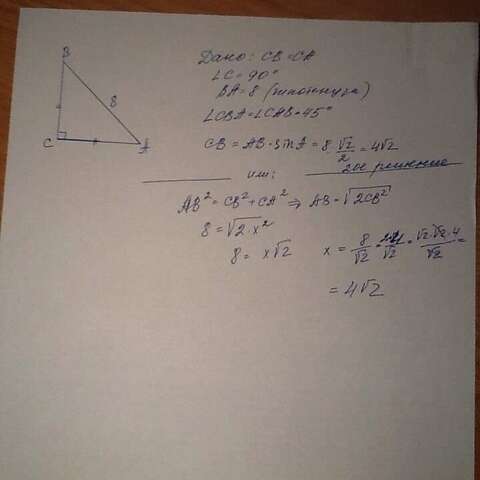 B
8
C
A
Дано: CB=CA
∠C=90°
BA=8 (гипотенуза)
∠CBA=∠CAB=45°
CB = AB·sin A = 8·√2/2 = 4√2
или: 2ое решение
AB² = CB² + CA² ⇒ AB = √2CB²
8 = √2·x²
8 = x√2 x = 8/√2 = 2·4/√2 = √2·√2·4/√2 =
= 4√2